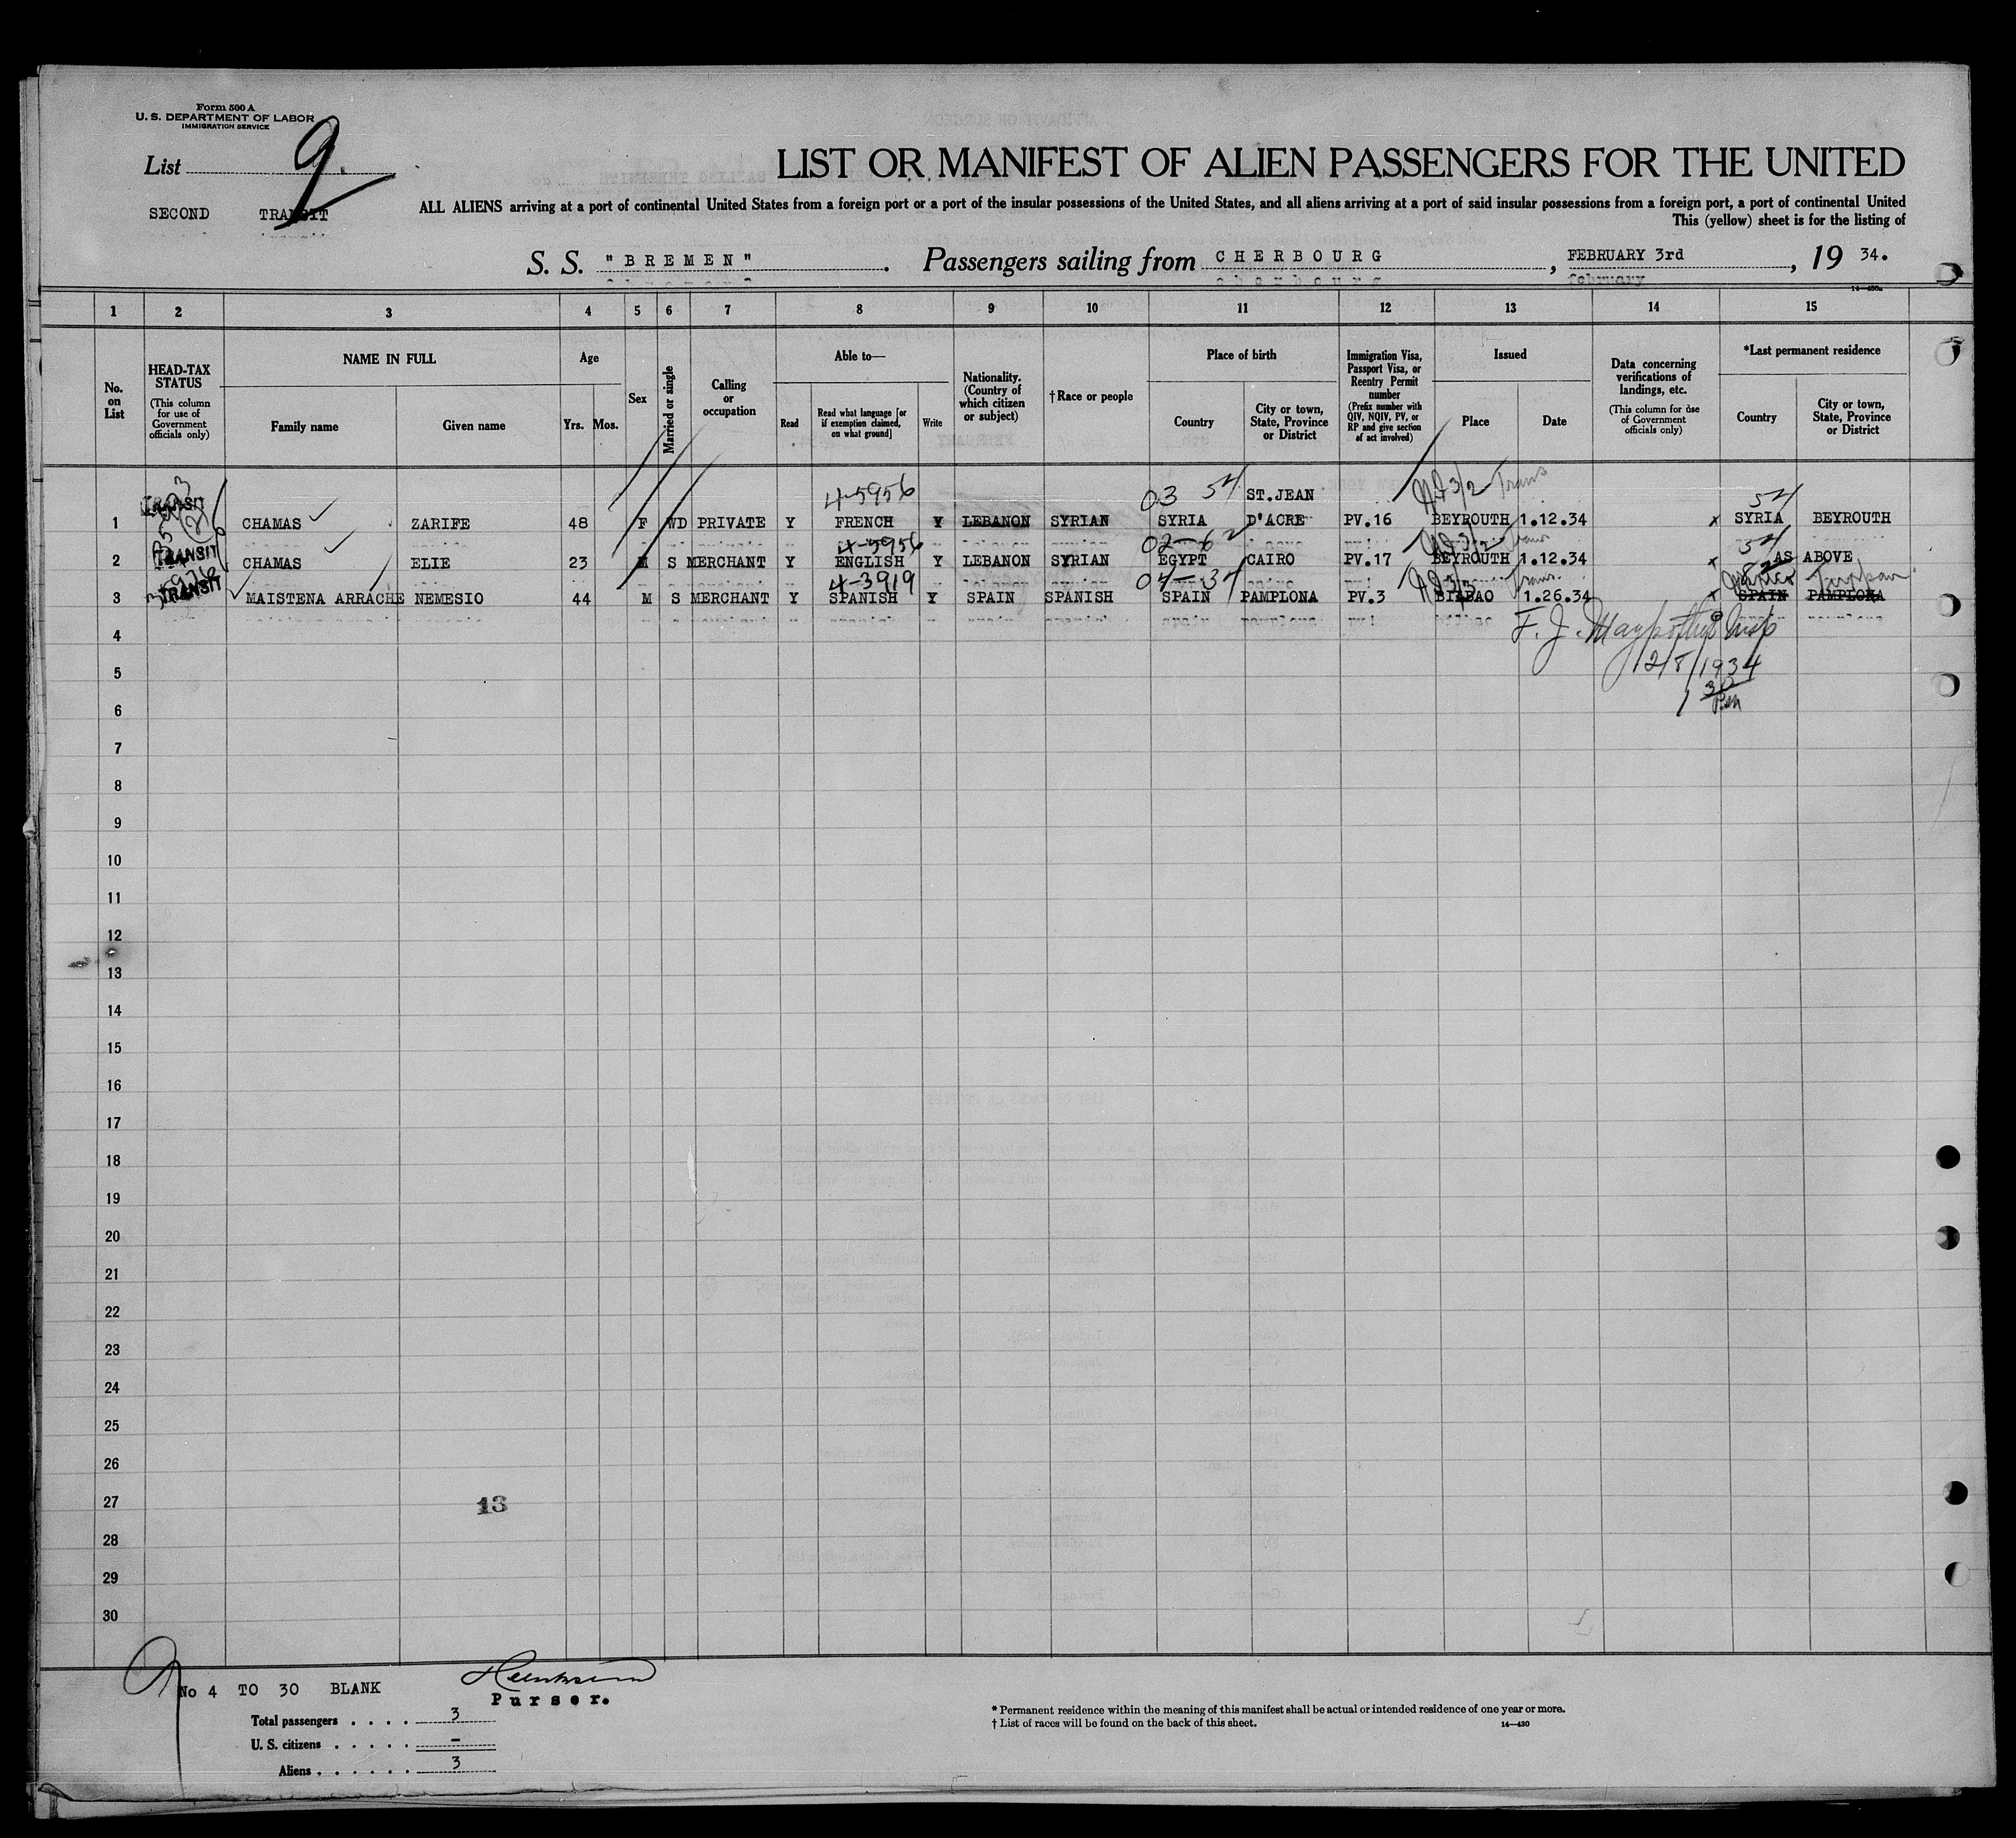 Form 500 A
U. S. DEPARTMENT OF LABOR
IMMIGRATION SERVICE
List 9.
SECOND TRANSIT
LIST OR MANIFEST OF ALIEN PASSENGERS FOR THE UNITED
ALL ALIENS arriving at a port of continental United States from a foreign port or a port of the insular possessions of the United States, and all aliens arriving at a port of said insular possessions from a foreign port, a port of continental United
This (yellow) sheet is for the listing of
S. S. "BREMEN" . Passengers sailing from CHERBOURG , FEBRUARY 3rd , 19 34.
february
14—430a
1 2 3 4 5 6 7 8 9 10 11 12 13 14 15
No. on List
HEAD-TAX STATUS (This column for use of Government officials only)
NAME IN FULL
Family name Given name
Age
Yrs. Mos.
Sex
Married or single
Calling or occupation
Able to—
Read
Read what language [or if exemption claimed, on what ground]
Write
Nationality. (Country of which citizen or subject)
†Race or people
Place of birth
Country
City or town, State, Province or District
Immigration Visa, Passport Visa, or Reentry Permit number (Prefix number with QIV, NQIV, PV, or RP and give section of act involved)
Issued
Place Date
Data concerning verifications of landings, etc. (This column for use of Government officials only)
*Last permanent residence
Country
City or town, State, Province or District
TRANSIT 4-5956 03 54 ST.JEAN 3/2 Trans 54
1 CHAMAS ZARIFE 48 F WD PRIVATE Y FRENCH Y LEBANON SYRIAN SYRIA D'ACRE PV.16 BEYROUTH 1.12.34 x SYRIA BEYROUTH
TRANSIT 4-5956 02-62 3/2 Trans 54
2 CHAMAS ELIE 23 M S MERCHANT Y ENGLISH Y LEBANON SYRIAN EGYPT CAIRO PV.17 BEYROUTH 1.12.34 x AS ABOVE
TRANSIT 4-3919 04-34 Trans.
3 MAISTENA ARRACHE NEMESIO 44 M S MERCHANT Y SPANISH Y SPAIN SPANISH SPAIN PAMPLONA PV.3 BILBAO 1.26.34 x SPAIN PAMPLONA
4
5
1934
6
7
8
9
10
11
12
13
14
15
16
17
18
19
20
21
22
23
24
25
26
27
13
28
29
30
No 4 TO 30 BLANK
Purser.
Total passengers . . . . 3
U. S. citizens . . . . . –
Aliens . . . . . . 3
* Permanent residence within the meaning of this manifest shall be actual or intended residence of one year or more.
† List of races will be found on the back of this sheet. 14—430